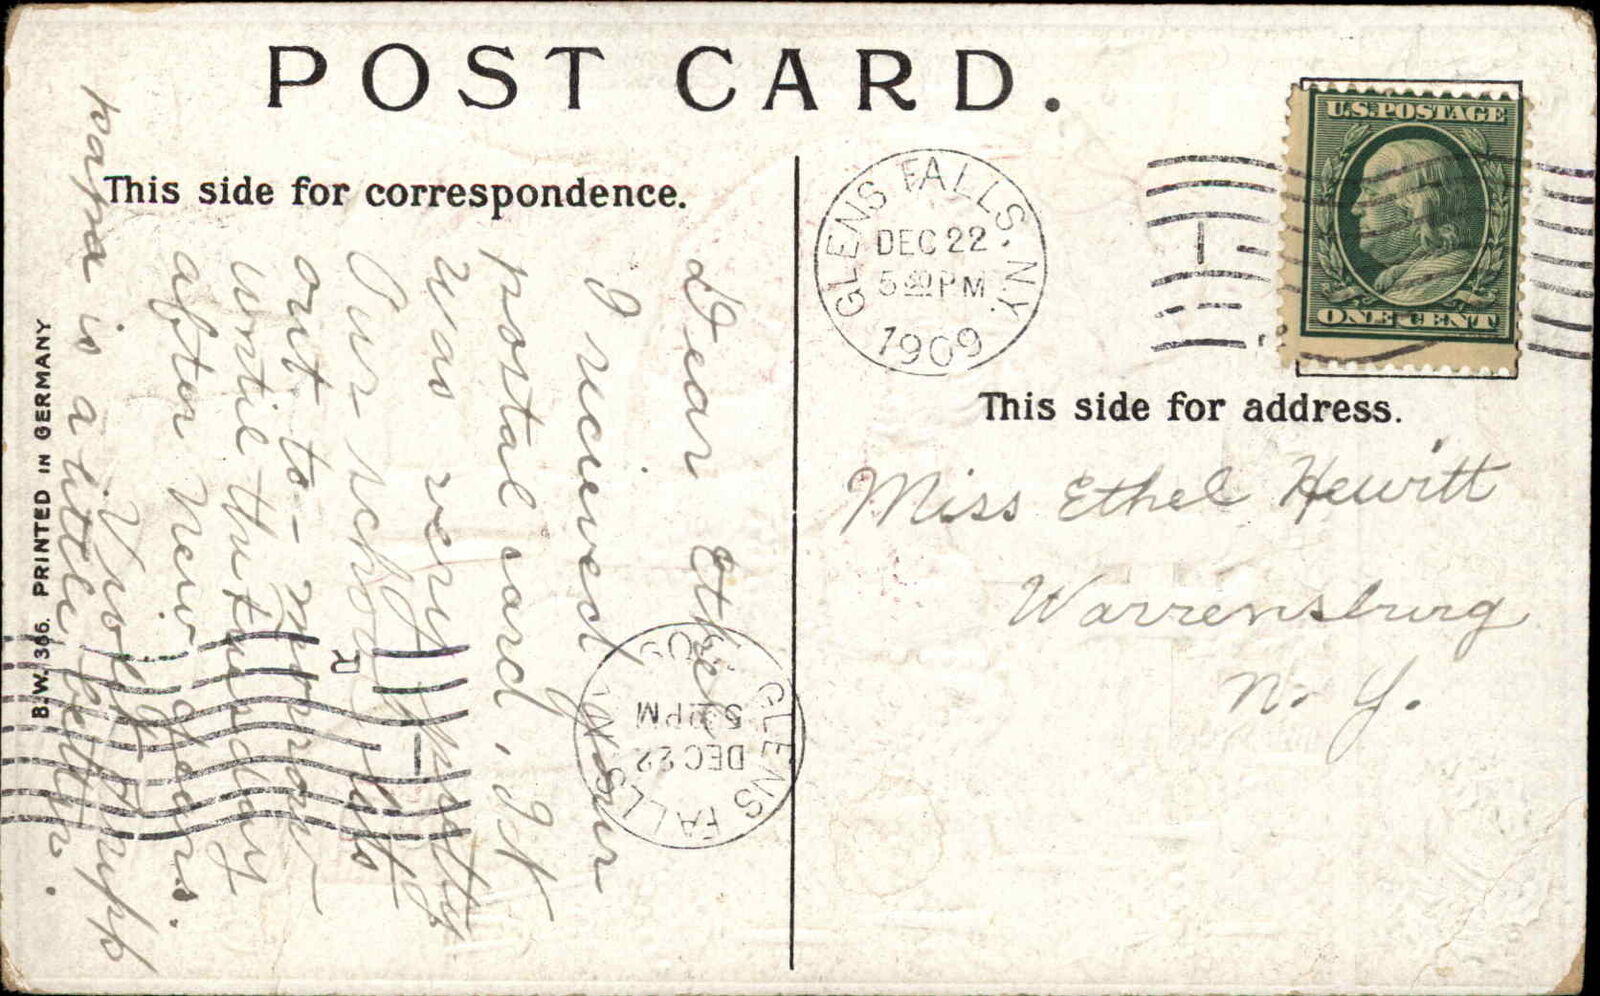 POST CARD.
This side for correspondence.
Dear Ethel
I received your
postal card, It
was very pretty
Our school lets
out to-morrow
until thursday
after New years.
Viola Krupp
papa is a little better.
B.W. 366. PRINTED IN GERMANY
GLENS FALLS. N.Y.
DEC 22
5 30 PM
1909
U.S. POSTAGE
ONE CENT
This side for address.
Miss Ethel Hewitt
Warrensburg
N. Y.
GLENS FALLS
DEC 22
PM